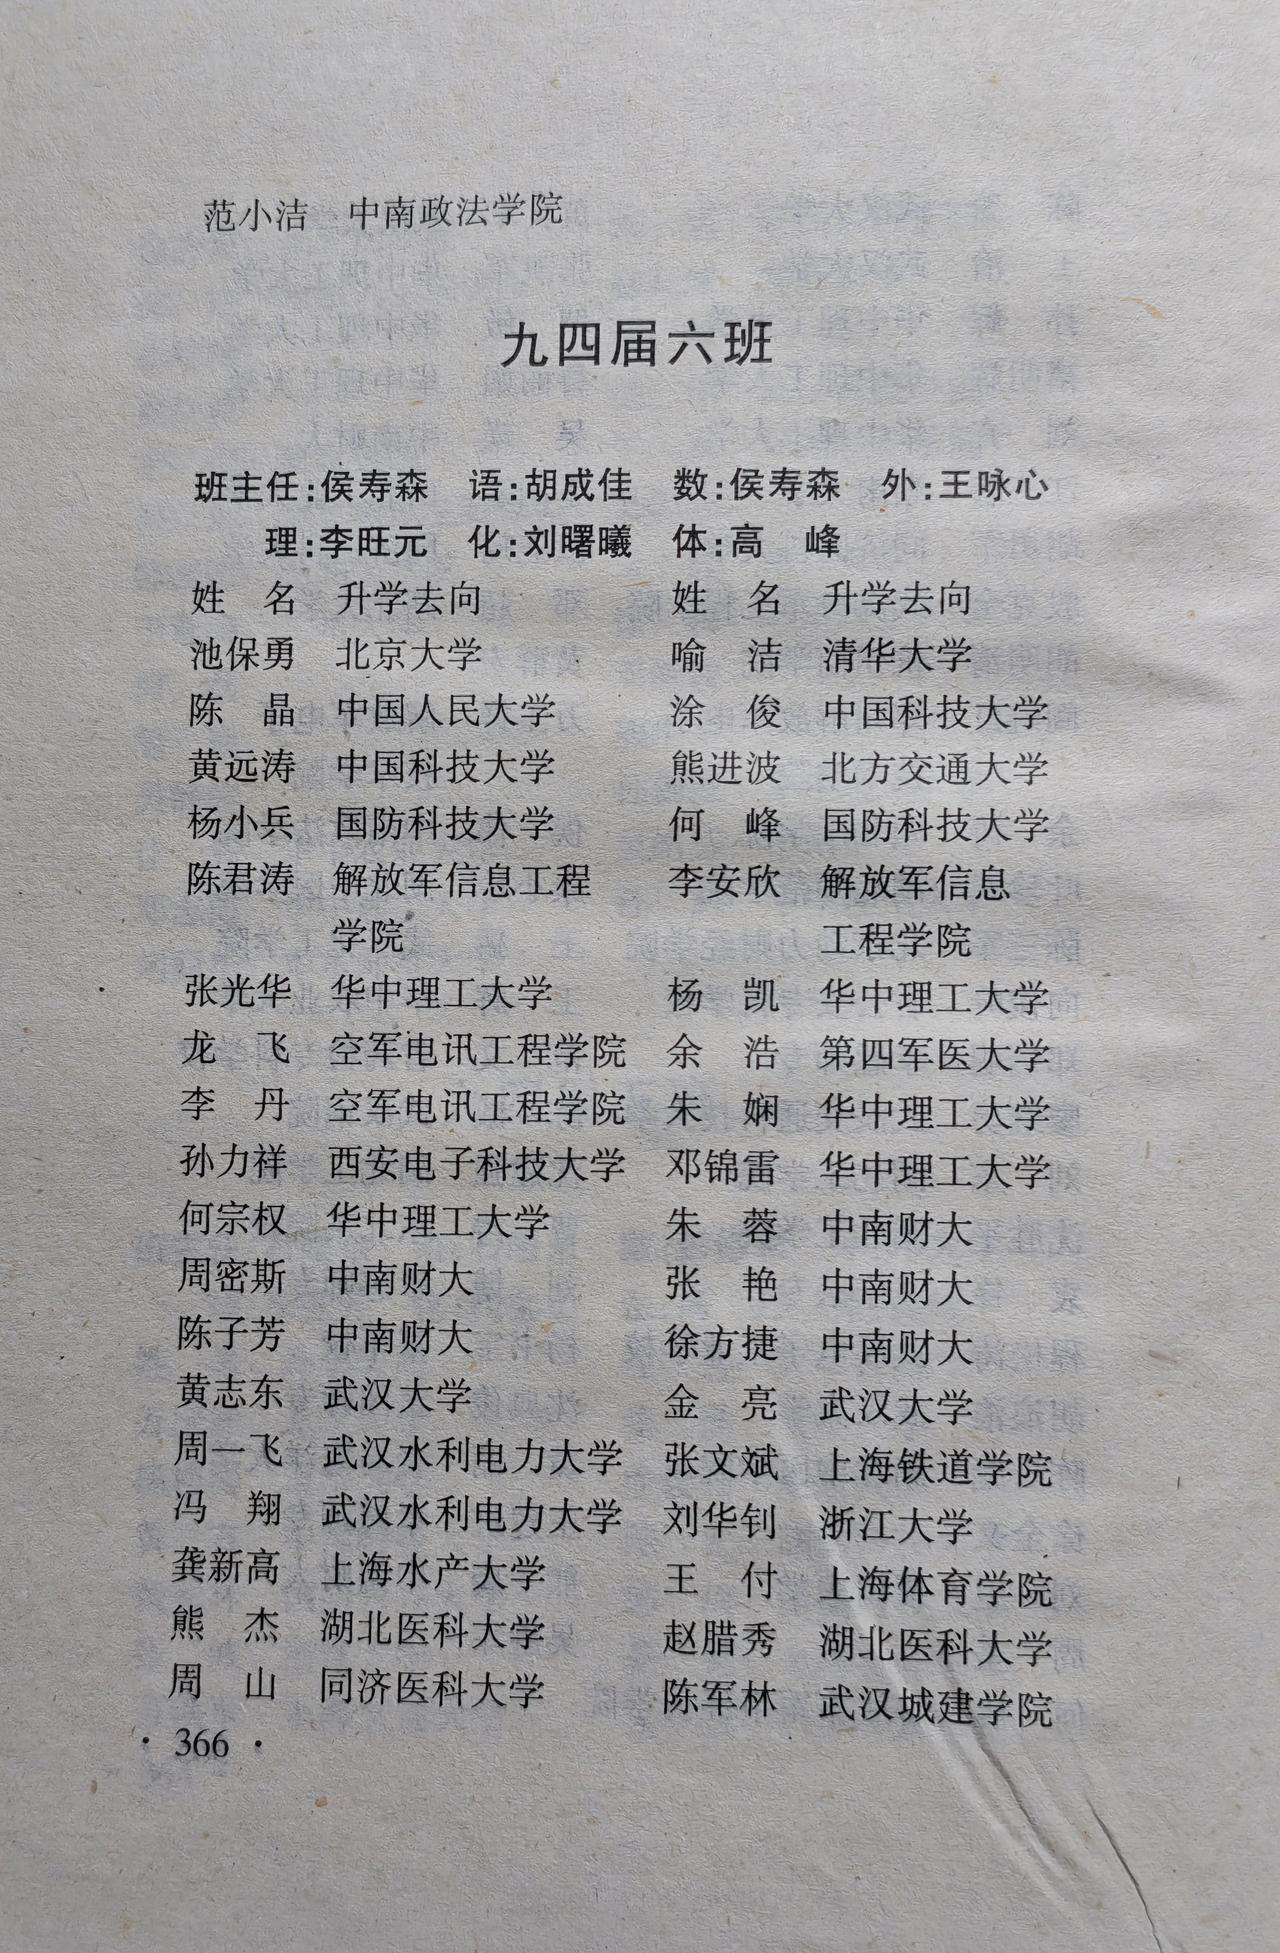 范小洁　中南政法学院
九四届六班
班主任:侯寿森　语:胡成佳　数:侯寿森　外:王咏心
理:李旺元　化:刘曙曦　体:高　峰
姓　名　升学去向　姓　名　升学去向
池保勇　北京大学　喻　洁　清华大学
陈　晶　中国人民大学　涂　俊　中国科技大学
黄远涛　中国科技大学　熊进波　北方交通大学
杨小兵　国防科技大学　何　峰　国防科技大学
陈君涛　解放军信息工程　李安欣　解放军信息
学院　工程学院
张光华　华中理工大学　杨　凯　华中理工大学
龙　飞　空军电讯工程学院　余　浩　第四军医大学
李　丹　空军电讯工程学院　朱　娴　华中理工大学
孙力祥　西安电子科技大学　邓锦雷　华中理工大学
何宗权　华中理工大学　朱　蓉　中南财大
周密斯　中南财大　张　艳　中南财大
陈子芳　中南财大　徐方捷　中南财大
黄志东　武汉大学　金　亮　武汉大学
周一飞　武汉水利电力大学　张文斌　上海铁道学院
冯　翔　武汉水利电力大学　刘华钊　浙江大学
龚新高　上海水产大学　王　付　上海体育学院
熊　杰　湖北医科大学　赵腊秀　湖北医科大学
周　山　同济医科大学　陈军林　武汉城建学院
· 366 ·